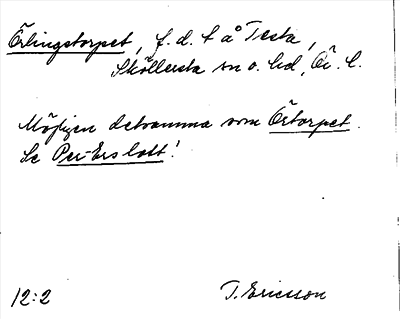 Örlingstorpet, f. d. t å Testa,
Sköllersta sn o. hd, Ör. l.
Möjligen detsamma som Örtorpet.
Se Per-Ers lott!
12:2
T. Ericsson